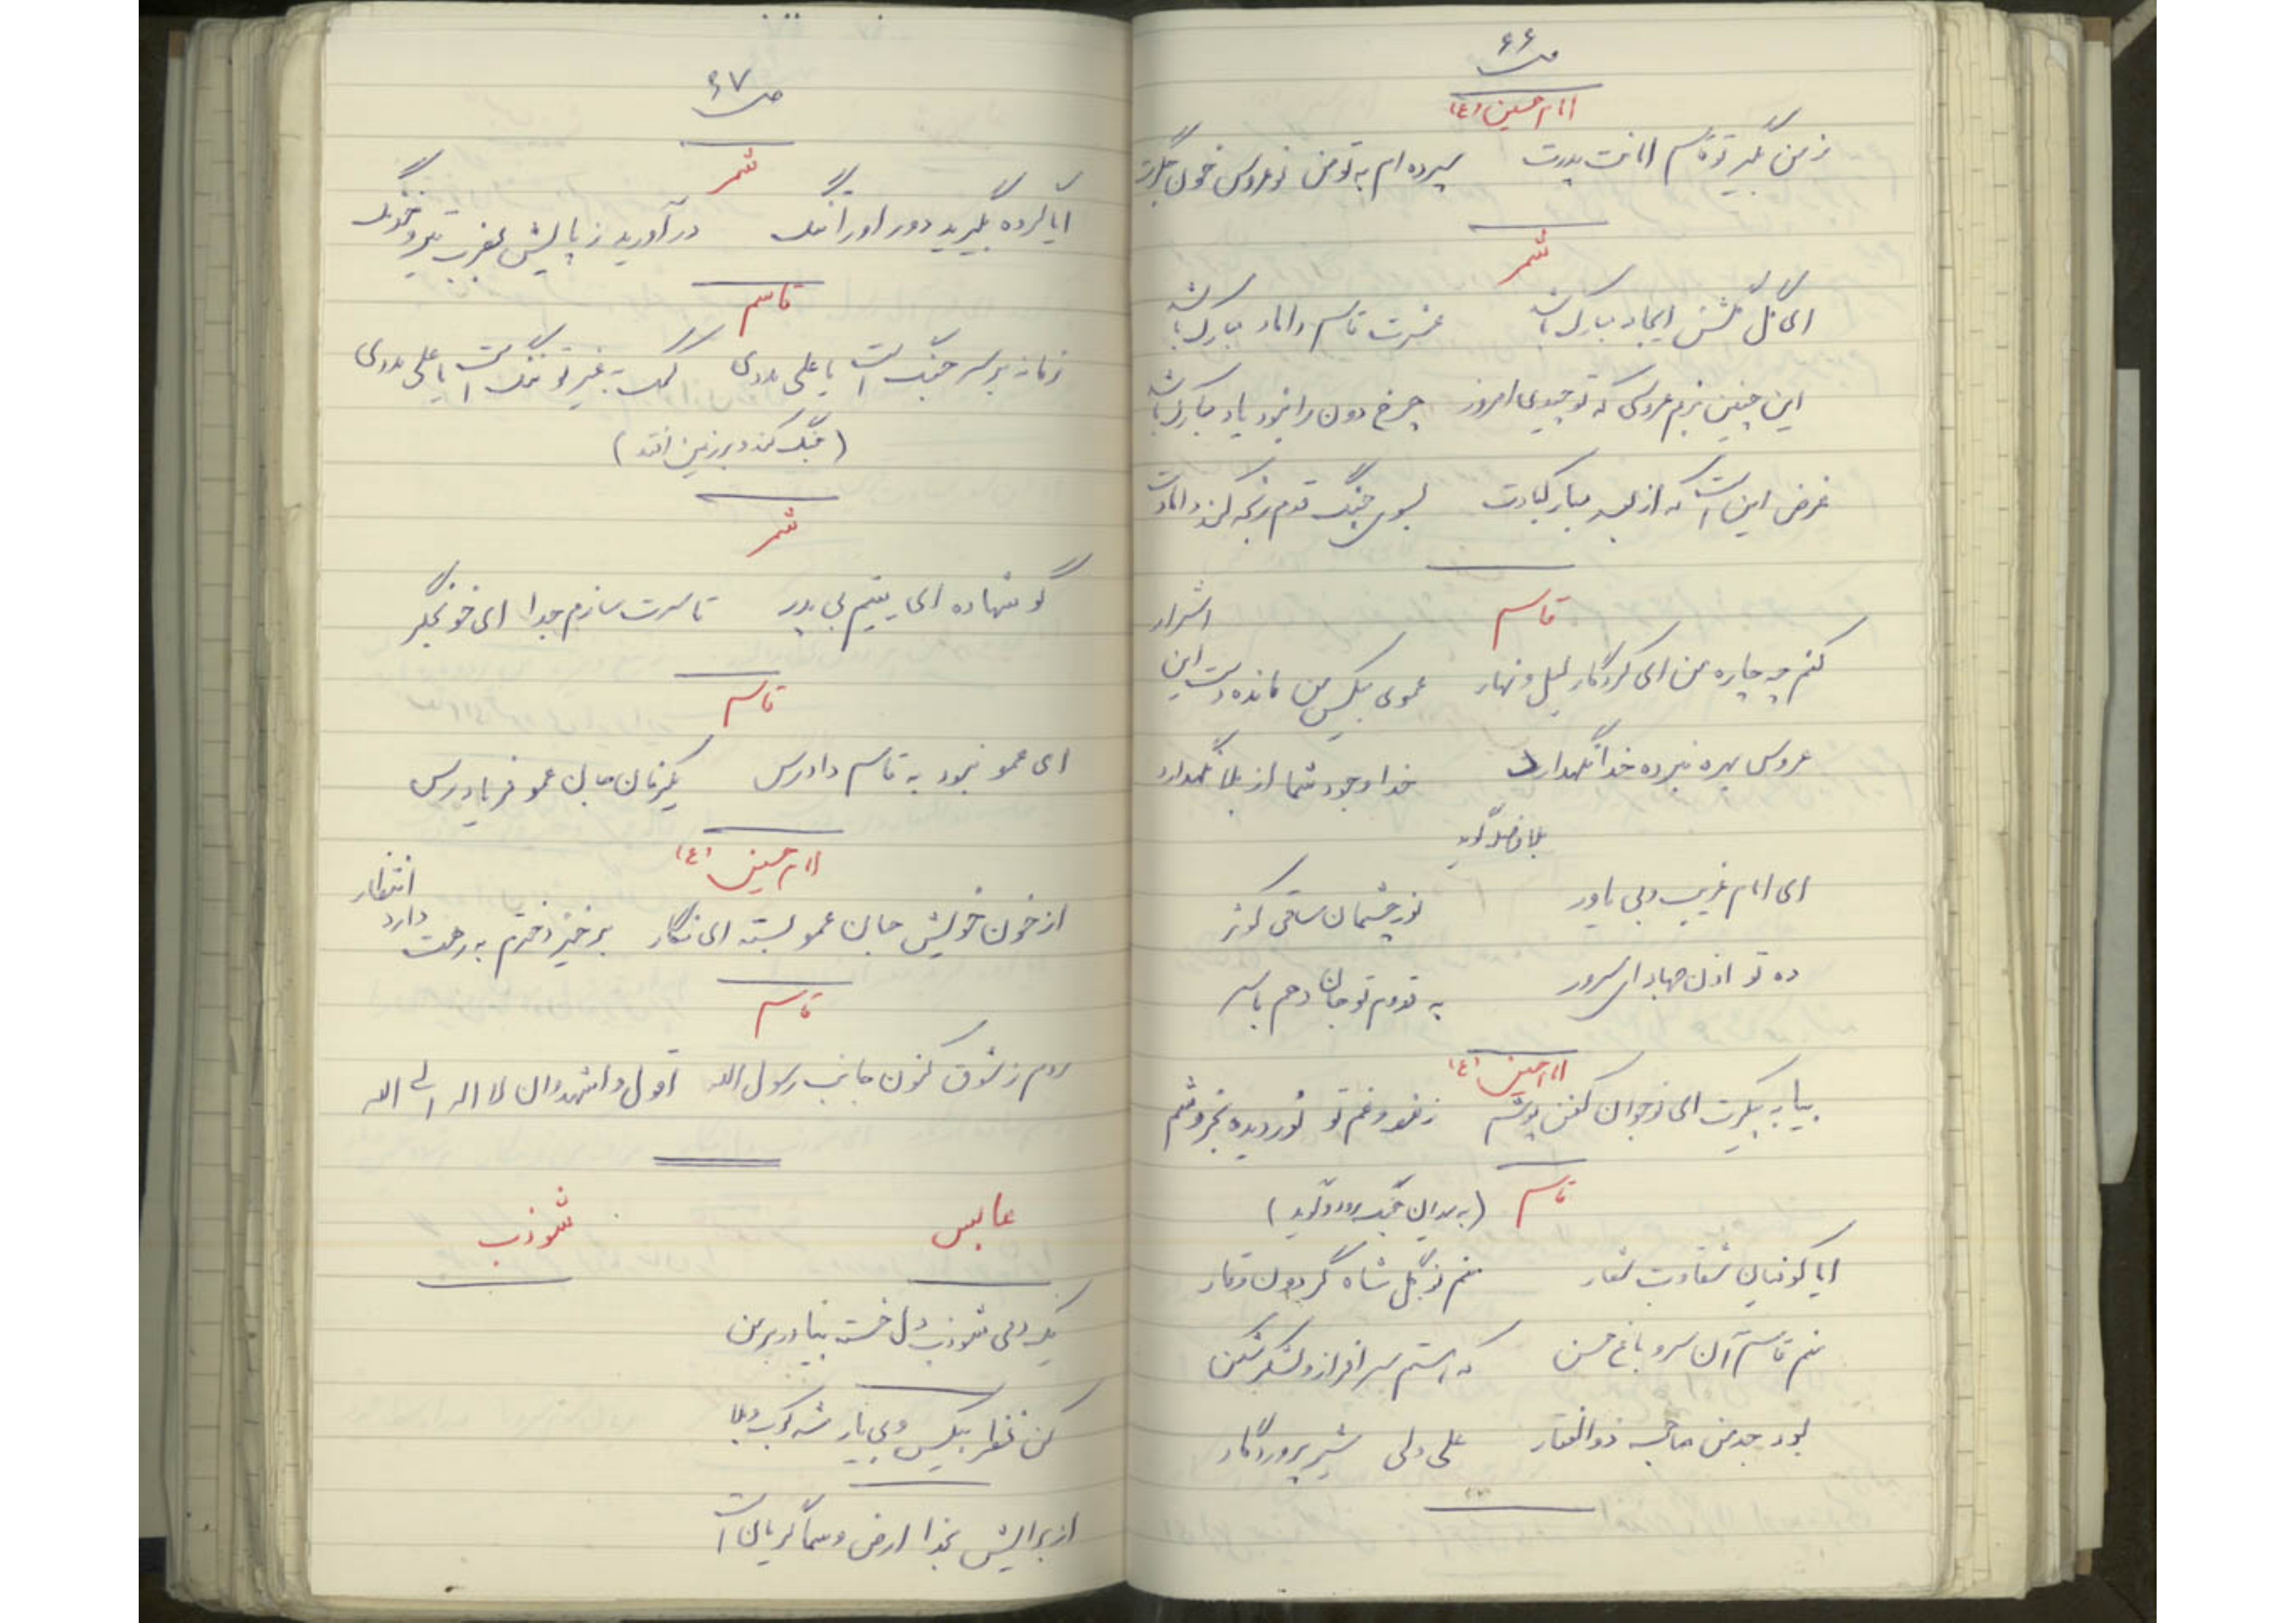 ص ۶۶
امام حسین (ع)
ز من بگیر تو قاسم امانت پدرت سپرده ام به تو من نوعروس خون جگرت
شمر
ای گل گلشن ایجاد مبارک باشد عشرت قاسم داماد مبارک باشد
این چنین بزم عروسی که تو چیدی امروز چرخ دون را نبود یاد مبارک باشد
غرض این است که از بعد مبارکبادت بسوی جنگ قدم رنجه کند دامادت
قاسم
کنم چه چاره من ای کردگار لیل و نهار عموی بیکس من مانده دست این اشرار
عروس بهره نبرده خدانگهدارت خدا وجود شما از بلا نگهدارد
بلافاصله گوید
ای امام غریب و بی یاور نور چشمان ساقی کوثر
ده تو اذن جهاد ای سرور به قدوم تو جان دهم یا سر
امام حسین (ع)
بیا به پیکرت ای نوجوان کفن پوشم ز غم تو نوردیده بخروشم
قاسم (به میدان جنگ رود و گوید)
ایا کوفیان شقاوت شعار منم نوگل شاه گردون وقار
منم قاسم آن سرو باغ حسن که هستم سرافراز و لشکر شکن
بود جد من صاحب ذوالفقار علی ولی شیر پروردگار
ص ۶۷
شمر
ایا گروه بگیرید دور او را تنگ در آورید ز پایش بضرب تیر و خدنگ
قاسم
زمانه بر سر جنگ است یا علی مددی کمک ز غیر تو ننگ است یا علی مددی
(جنگ کند و بر زمین افتد)
شمر
گو شهاده ای یتیم بی پدر تا سرت سازم جدا ای خونجگر
قاسم
ای عمو نبود به قاسم دادرس یکزمان جان عمو فریادرس
امام حسین (ع)
از خون خویش جان عمو بسته ای نگار برخیز دخترم به رهت دارد انتظار
قاسم
روم ز شوق کنون جانب رسول الله اقول و اشهد ان لا اله الی الله
عابس شوذب
یکدمی شوذب دل خسته بیا در بر من
کن نظر بیکس و بی یار شه کرب و بلا
از برایش بخدا ارض و سما گریان است